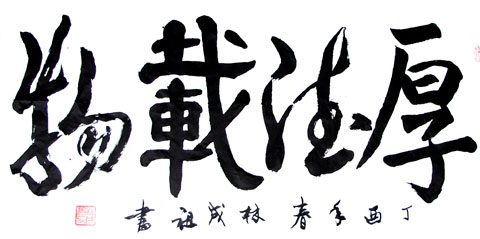 厚德載物
丁酉年春 林成祖書